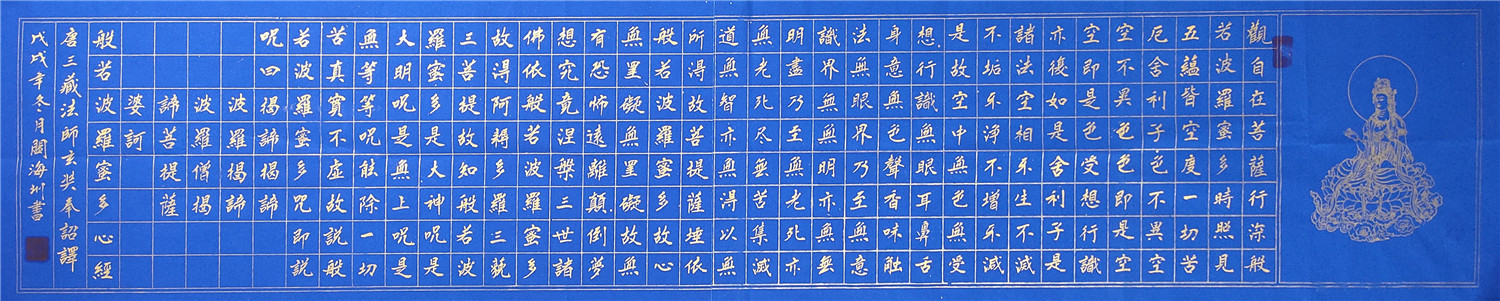 觀自在菩薩行深般
若波羅蜜多時照見
五蘊皆空度一切苦
厄舍利子色不異空
空不異色色即是空
空即是色受想行識
亦復如是舍利子是
諸法空相不生不滅
不垢不淨不增不減
是故空中無色無受
想行識無眼耳鼻舌
身意無色聲香味觸
法無眼界乃至無意
識界無無明亦無無
明盡乃至無老死亦
無老死尽無苦集滅
道無智亦無得以無
所得故菩提薩埵依
般若波羅蜜多故心
無罣礙無罣礙故無
有恐怖遠離顛倒夢
想究竟涅槃三世諸
佛依般若波羅蜜多
故得阿耨多羅三藐
三菩提故知般若波
羅蜜多是大神呪是
大明呪是無上呪是
無等等呪能除一切
苦真實不虛故說般
若波羅蜜多咒即說
呪曰揭諦揭諦
波羅揭諦
波羅僧揭
諦菩提薩
婆訶
般若波羅蜜多心經
唐三藏法師玄奘奉詔譯
戊戌年冬月關海州書